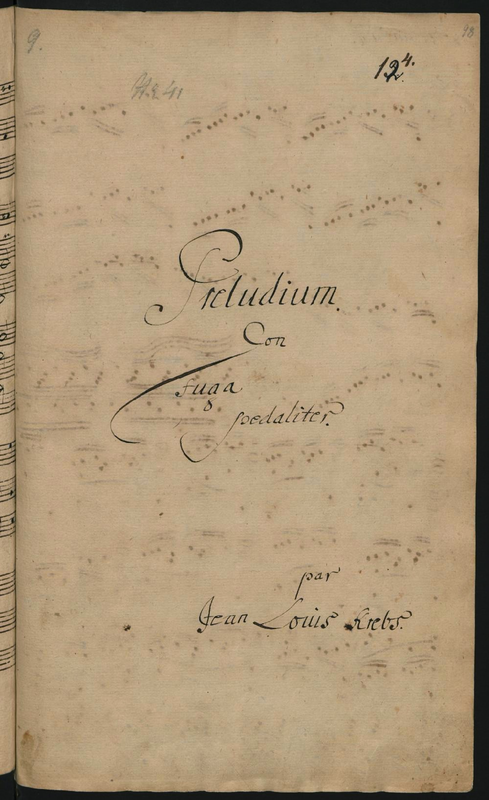 9.
98
124.
Preludium.
Con
fuga
pedaliter.
par
Jean Louis Krebs.